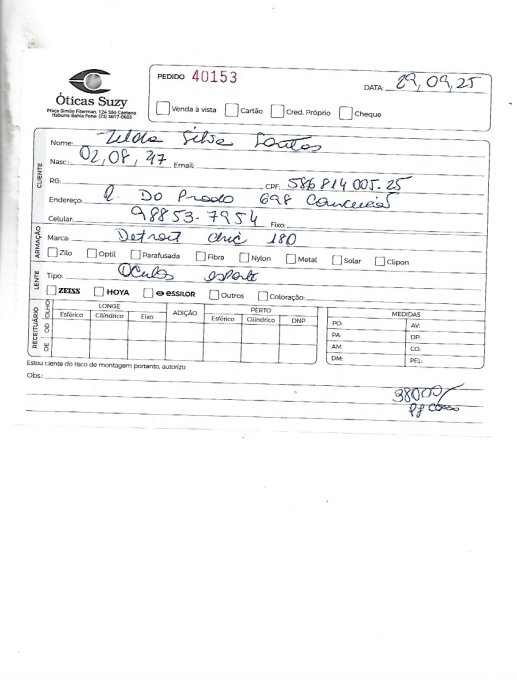 Óticas Suzy
Praça Simão Fiterman, 124 São Caetano
Itabuna Bahia Fone: (73) 3617-0603
PEDIDO 40153
DATA: 29,09,25
Venda à vista Cartão Cred. Próprio Cheque
CLIENTE
Nome: Zelda Silva Santos
Nasc.: 02,08,47 Email:
RG: CPF: 586 814 005.25
Endereço: R. Do Prado 698 Conceição
Celular: 98853-7954 Fixo:
ARMAÇÃO
Marca: Detroit chic 180
Zilo Optil Parafusada Fibra Nylon Metal Solar Clipon
LENTE
Tipo: Oculos esporte
ZEISS HOYA essilor Outros Coloração:
RECEITUÁRIO
OLHO LONGE ADIÇÃO PERTO MEDIDAS
Esférico Cilíndrico Eixo Esférico Cilíndrico DNP
OD
OE
PO: AV:
PA: DP:
AM: CO:
DM: PEL:
Estou ciente do risco de montagem portanto, autorizo
Obs.:
380,00